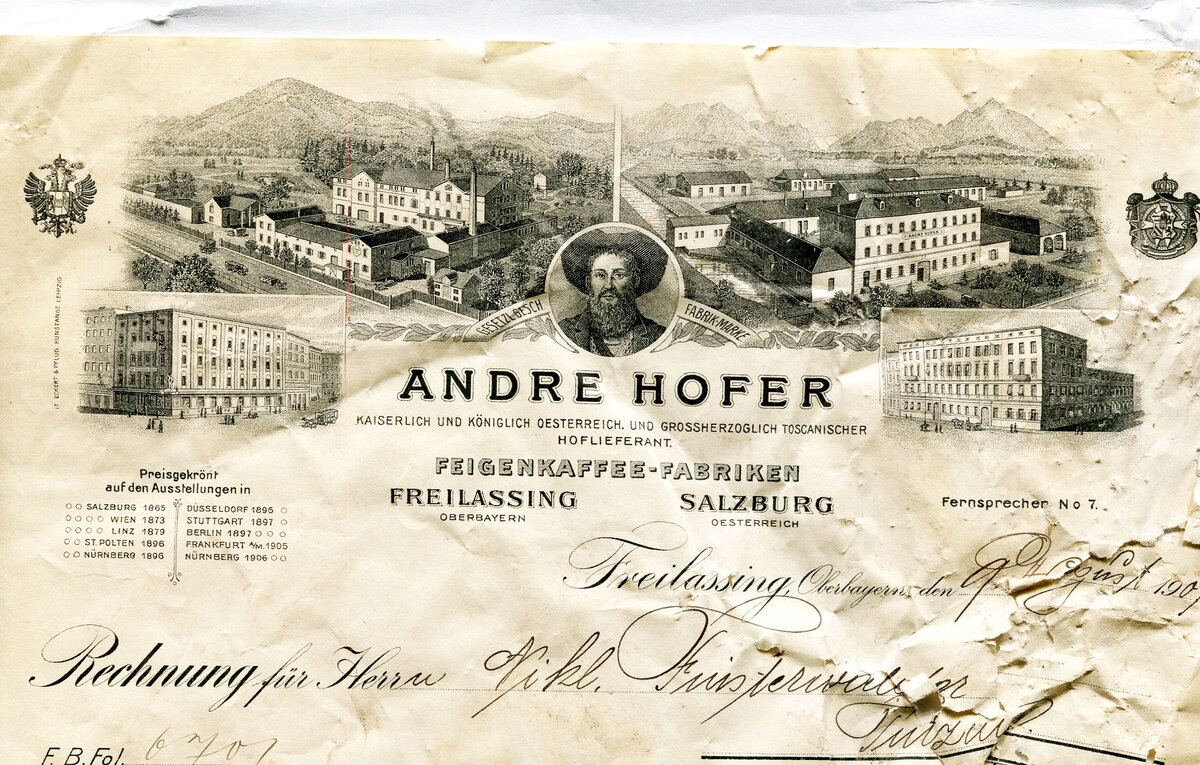 GESETZL. GESCH. FABRIK-MARKE
ANDRE HOFER
KAISERLICH UND KÖNIGLICH OESTERREICH. UND GROSSHERZOGLICH TOSCANISCHER
HOFLIEFERANT.
FEIGENKAFFEE-FABRIKEN
FREILASSING SALZBURG
OBERBAYERN OESTERREICH
Preisgekrönt
auf den Ausstellungen in
SALZBURG 1865 DÜSSELDORF 1896
WIEN 1873 STUTTGART 1897
LINZ 1879 BERLIN 1897
ST. POLTEN 1896 FRANKFURT A/M. 1905
NÜRNBERG 1896 NÜRNBERG 1906
Fernsprecher No 7.
ECKERT & PFLUG, KUNSTANST. LEIPZIG
Freilassing, Oberbayern, den 9. August 190
Rechnung für Herrn Nikl. Finsterwalder
F. B. Fol. 670